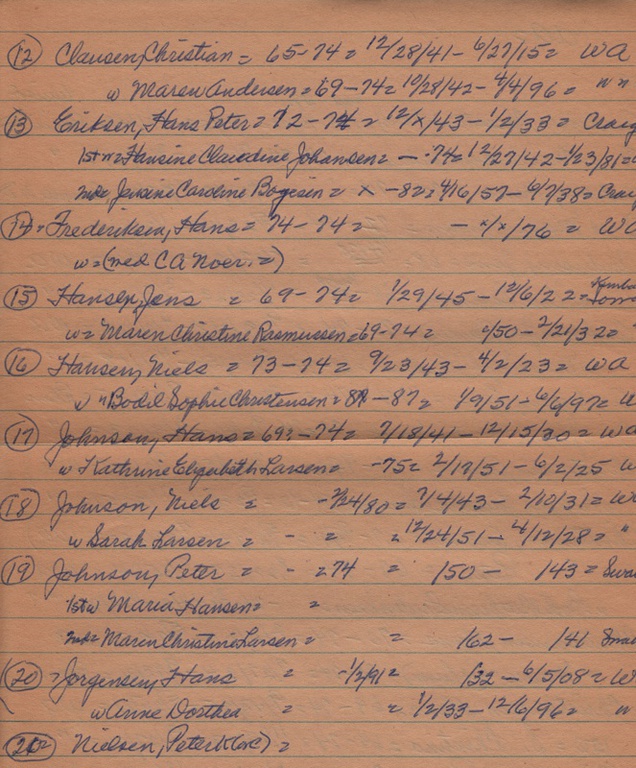 (12) Clausen, Christian = 65-74 = 12/28/41 - 6/27/15 = WA
w Maren Andersen = 69-74 = 10/28/42 - 4/4/96 = " "
(13) Eriksen, Hans Peter = 72-74 = 12/x/43 - 1/2/33 = Craig
1st w = Hansine Claudine Johansen = - -74 = 12/27/42 - 1/23/81 =
Jensine Caroline Bogesen = x -82 = 4/16/57 - 6/7/38 = Craig
(14) = Frederiksen, Hans = 74-74 = - x/x/76 = WA
w = (med C A Noer. =)
(15) Hansen, Jens = 69-74 = 1/29/45 - 12/6/22 =
w = Maren Christine Rasmussen = 69-74 = /50 - 2/21/32 =
(16) Hansen, Niels = 73-74 = 9/23/43 - 4/2/23 = WA
w " Bodil Sophie Christensen = 87-87 = 1/9/51 - 6/6/97 = W
(17) Johnson, Hans = 69? - 74 = 7/18/41 - 12/15/30 = WA
w Kathrine Elizabeth Larsen = -75 = 2/17/51 - 6/2/25 W
(18) Johnson, Niels = -2/24/80 = 7/4/43 - 2/10/31 = W
w Sarah Larsen = - = = 12/24/51 - 4/12/28 = "
(19) Johnson, Peter = - = 74 = 150 - 143 = Swa
1st w Maria Hansen = =
Maren Christine Larsen = = 162 - 141
(20) = Jorgensen, Hans = -1/2/91 = 132 - 6/5/08 = W
w Anne Dorthea = = 1/2/33 - 12/6/96 = "
Nielsen, Peter =